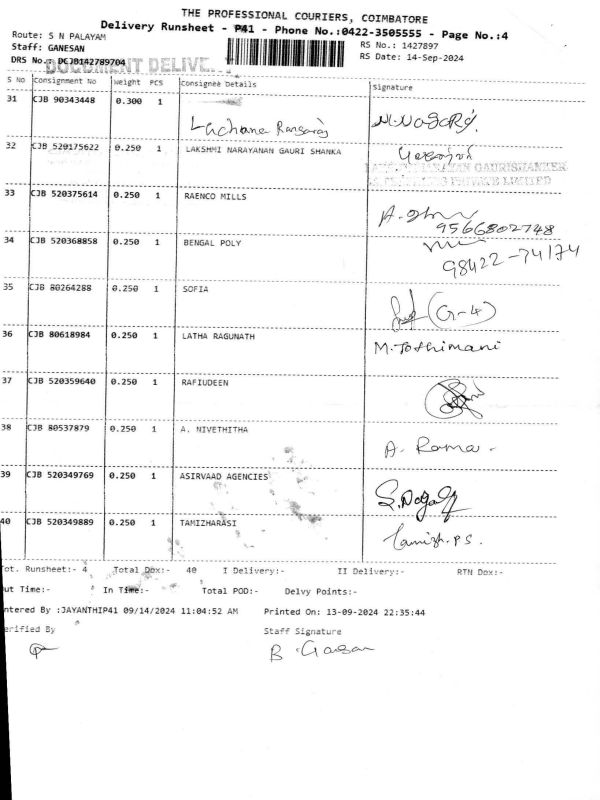 THE PROFESSIONAL COURIERS, COIMBATORE
Delivery Runsheet - P41 - Phone No.:0422-3505555 - Page No.:4
Route: S N PALAYAM
Staff: GANESAN
RS No.: 1427897
DRS No.: DCJB142789704
RS Date: 14-Sep-2024
DOCUMENT DELIVE
S No Consignment No Weight PCS Consignee Details Signature
31 CJB 90343448 0.300 1
32 CJB 520175622 0.250 1 LAKSHMI NARAYANAN GAURI SHANKA
33 CJB 520375614 0.250 1 RAENCO MILLS
9566802748
34 CJB 520368858 0.250 1 BENGAL POLY
98422-74174
35 CJB 80264288 0.250 1 SOFIA (G-4)
36 CJB 80618984 0.250 1 LATHA RAGUNATH M.Jothimani
37 CJB 520359640 0.250 1 RAFIUDEEN
38 CJB 80537879 0.250 1 A. NIVETHITHA A. Rama.
39 CJB 520349769 0.250 1 ASIRVAAD AGENCIES
40 CJB 520349889 0.250 1 TAMIZHARASI Tamizh.P.S.
Tot. Runsheet:- 4 Total Dox:- 40 I Delivery:- II Delivery:- RTN Dox:-
Out Time:- In Time:- Total POD:- Delvy Points:-
ntered By :JAYANTHIP41 09/14/2024 11:04:52 AM Printed On: 13-09-2024 22:35:44
erified By Staff Signature